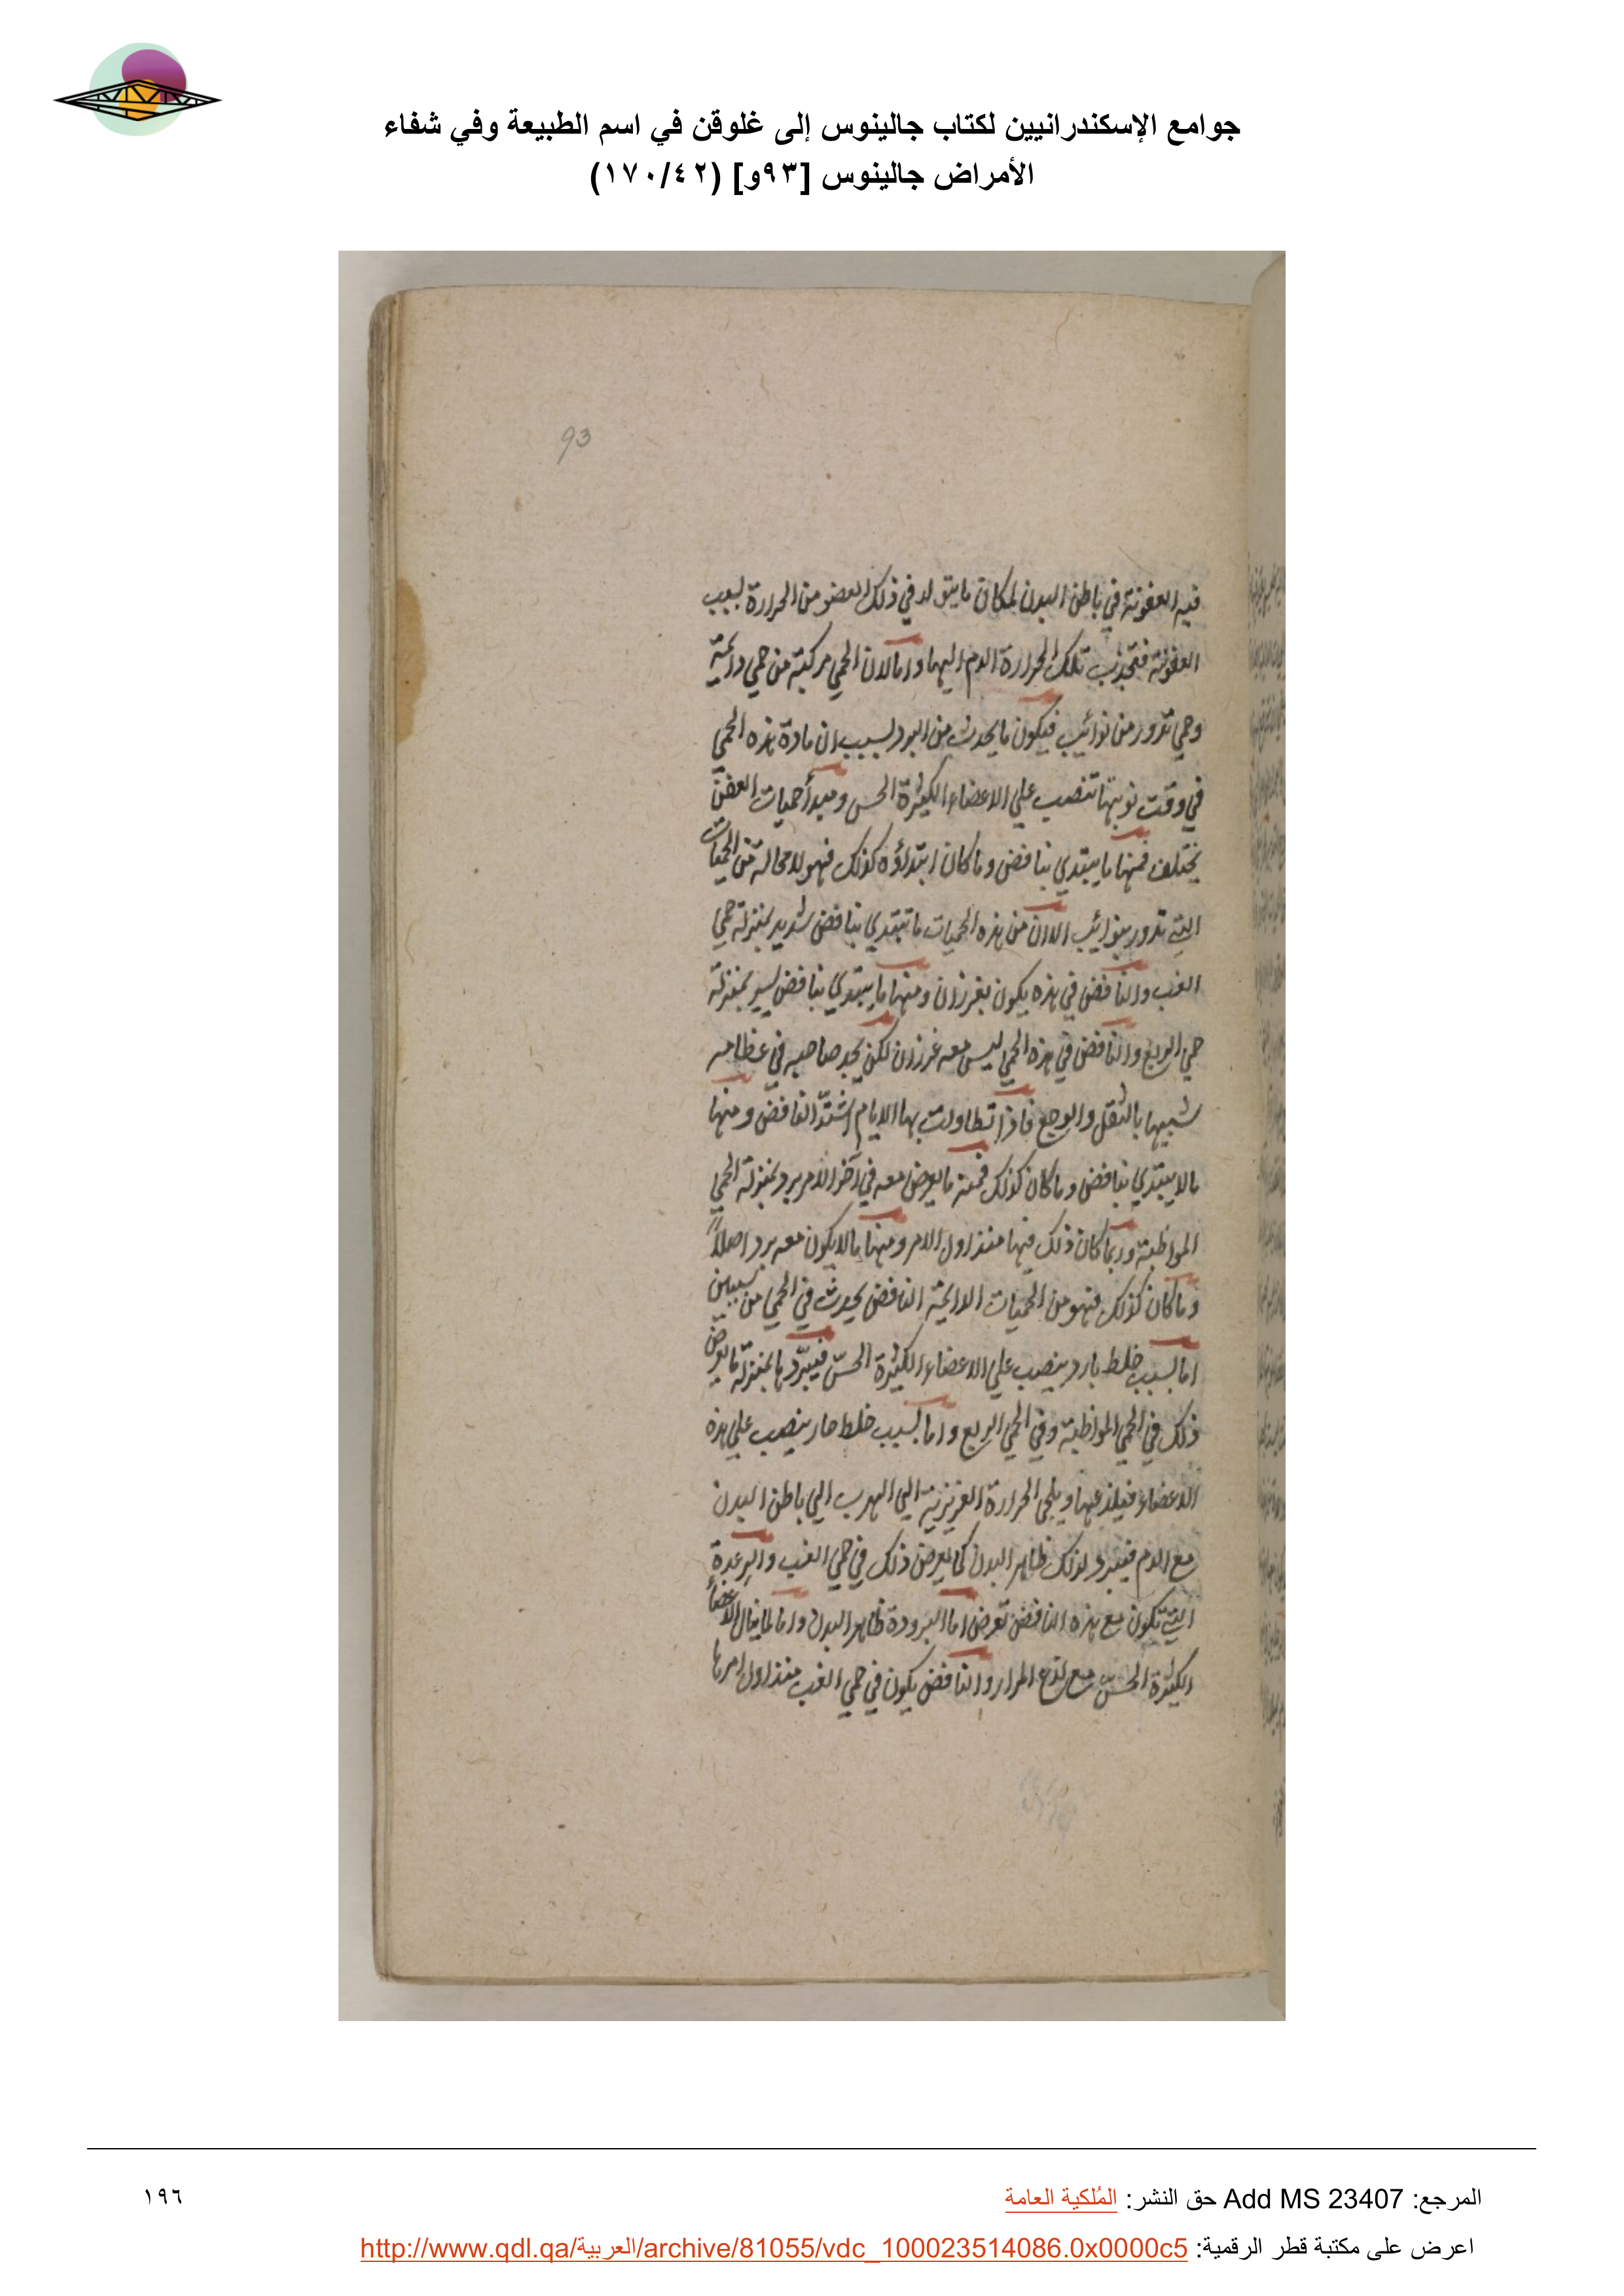 جوامع الإسكندرانيين لكتاب جالينوس إلى غلوقن في اسم الطبيعة وفي شفاء
الأمراض جالينوس [٩٣و] (١٧٠/٤٢)
93
فيه العفونة في باطن البدن لمكان ما يتولد في ذلك العضو من الحرارة لسبب
العفونة فتجذب تلك الحرارة الدم اليها واما لان الحمي مركبة من حمي دايمة
وحمي تدور من نوائب فيكون ما يحدث من البرد لسبب ان مادة هذه الحمي
في وقت نوبتها تنصب علي الاعضاء الكثيرة الحس ومبدأ حميات العفن
يختلف فمنها ما يبتدي بنافض وما كان ابتداؤه كذلك فهو لا محالة من الحميات
التي تدور بنوائب الا ان من هذه الحميات ما تبتدي بنافض شديد بمنزلة حمي
الغب والنافض في هذه يكون بغرزان ومنها ما يبتدي بنافض يسير بمنزلة
حمي الربع والنافض في هذه الحمي ليس معه غرزان لكن يجد صاحبه في عظامه
شبيها بالثقل والوجع فاذا تطاولت بها الايام اشتدّ النافض ومنها
ما لا يبتدي بنافض وما كان كذلك فمنه ما يعرض معه في آخر الامر برد بمنزلة الحمي
المواظبة وربما كان ذلك فيها منذ اول الامر ومنها ما لا يكون معه برد اصلاً
وما كان كذلك فهو من الحميات الدايمة النافض يحدث في الحمي من سببين
اما لسبب خلط بارد ينصب علي الاعضاء الكثيرة الحسّ فيبرّدها بمنزلة ما يعرض
ذلك في الحمي المواظبة وفي الحمي الربع واما لسبب خلط حار ينصب علي هذه
الاعضاء فيلذعها ويلجي الحرارة الغريزية الي الهرب الي باطن البدن
مع الدم فيبرد لذلك ظاهر البدن كما يعرض ذلك في حمي الغب والرعدة
التي تكون مع هذه النافض تعرض اما لبرودة ظاهر البدن واما لما ينال الاعضأ
الكثيرة الحسّ مع لذع المرار والنافض يكون في حمي الغب منذ اول امرها
المرجع: Add MS 23407 حق النشر: المُلكية العامة
١٩٦
اعرض على مكتبة قطر الرقمية: http://www.qdl.qa/العربية/archive/81055/vdc_100023514086.0x0000c5